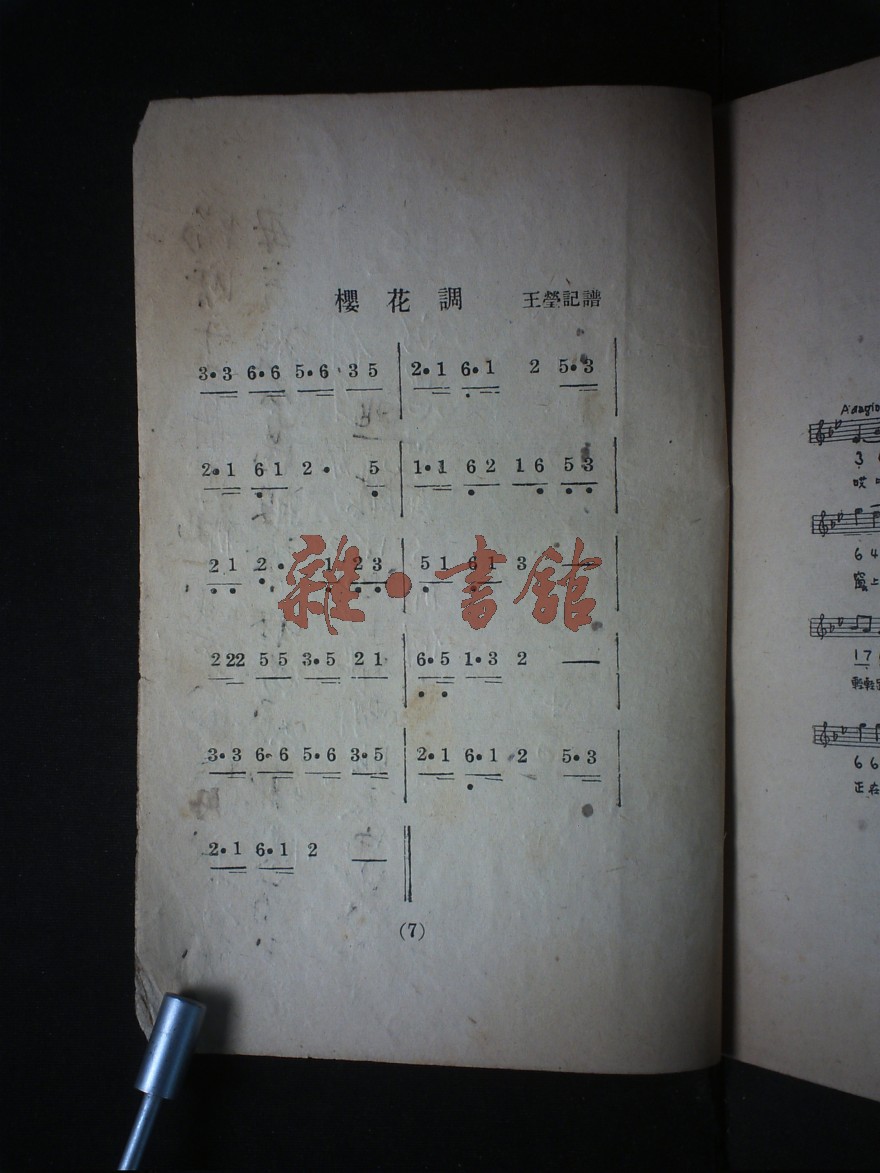 櫻花調 王瑩記譜
3•3 6•6 5•6 3 5 | 2•1 6•1 2 5•3 |
2•1 6 1 2• 5 | 1•1 6 2 1 6 5 3 |
2 1 2• 1 2 3 | 5 1 6 1 3 — |
雜•書館
2 22 5 5 3•5 2 1 | 6•5 1•3 2 — |
3•3 6•6 5•6 3•5 | 2•1 6•1 2 5•3 |
2•1 6•1 2 — ‖
(7)
Adagio
3
哎
6 4
窗上
1 7
輕輕
6 6
正在